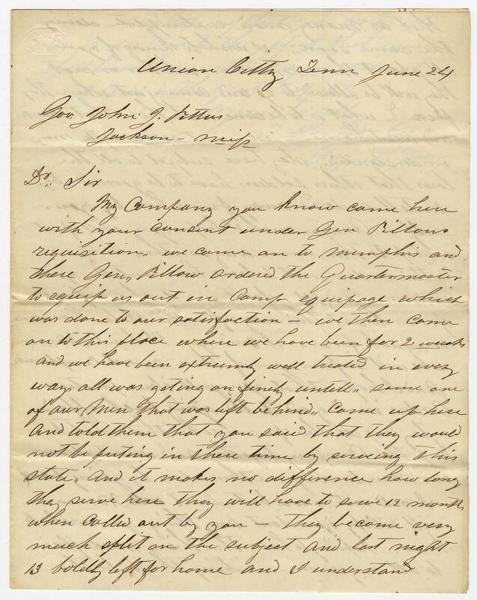 Union Citty Tenn June 24
Gov John J. Pettus
Jackson - Miss
Dr. Sir
My Company you know came here
with your consent under Gen Pillows
requisition, we came on to Memphis and
there Gen, Pillow ordered the Quartermaster
to equip us out in camp equipage which
was done to our satisfaction - we then came
on to this place where we have been for 2 weeks
and we have been extremely well treated in every
way, all was geting on finely untill some one
of our men that was left behind, came up here
and told them that you said that they would
not be puting in there time by serveing this
state, and it makes no difference how long
they serve here they will have to serve 12 months
when called out by you - they became very
much split on the subject and last night
13 boldly left for home and I understand